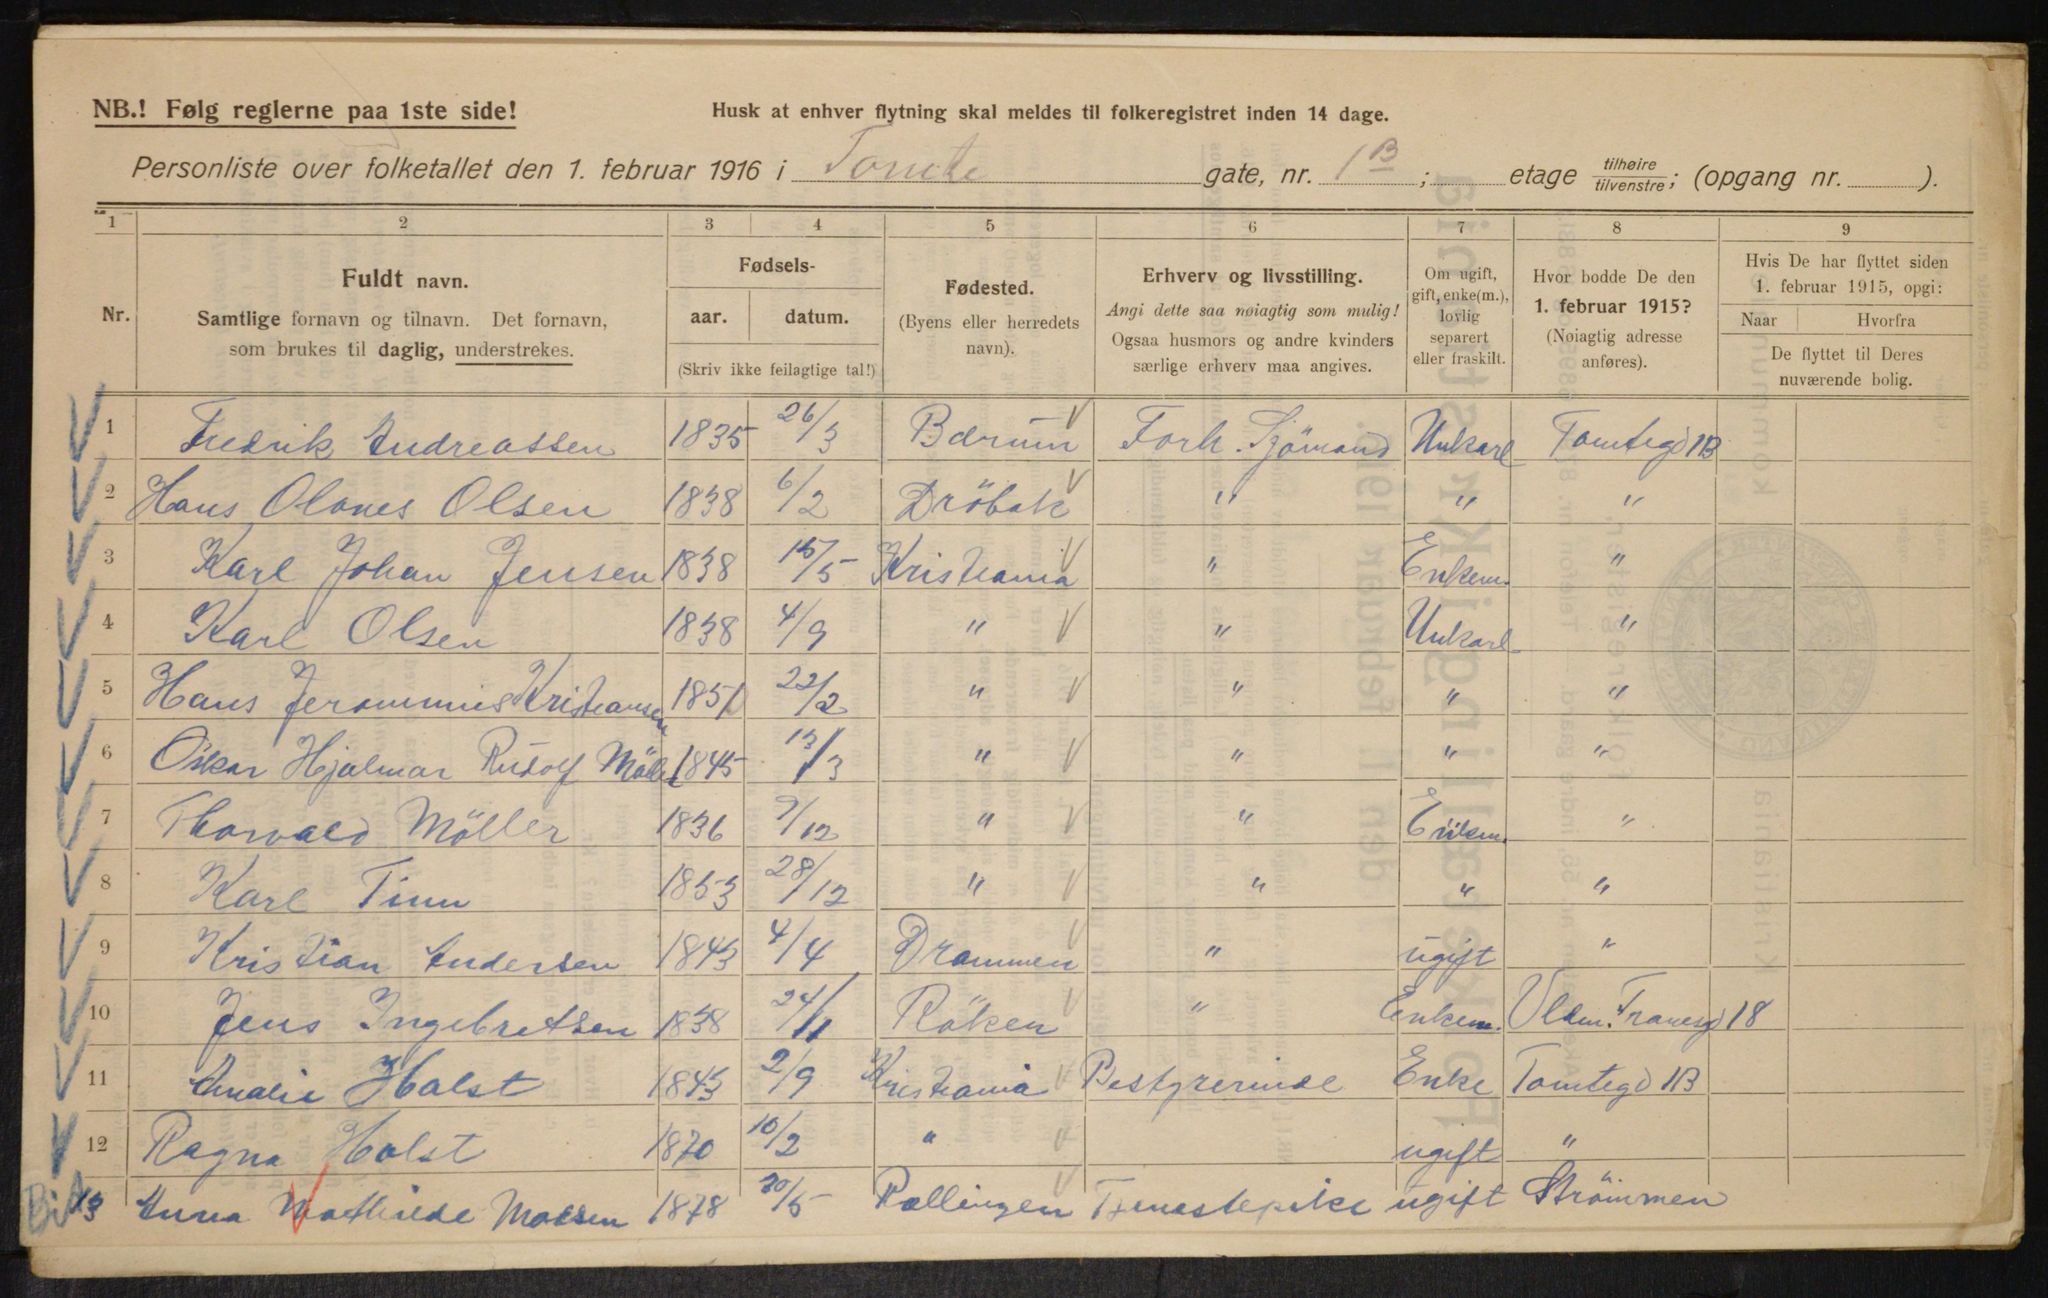 NB.! Følg reglerne paa 1ste side!
Husk at enhver flytning skal meldes til folkeregistret inden 14 dage.
Personliste over folketallet den 1. februar 1916 i Tomte gate, nr. 1 B ; etage tilhøire / tilvenstre; (opgang nr. ).
1 2 3 4 5 6 7 8 9
Nr. Fuldt navn. Samtlige fornavn og tilnavn. Det fornavn, som brukes til daglig, understrekes.
Fødsels- aar. datum. (Skriv ikke feilagtige tal!)
Fødested. (Byens eller herredets navn).
Erhverv og livsstilling. Angi dette saa nøiagtig som mulig! Ogsaa husmors og andre kvinders særlige erhverv maa angives.
Om ugift, gift, enke(m.), lovlig separert eller fraskilt.
Hvor bodde De den 1. februar 1915? (Nøiagtig adresse anføres).
Hvis De har flyttet siden 1. februar 1915, opgi: Naar Hvorfra De flyttet til Deres nuværende bolig.
1 Fredrik Andreassen 1835 26/3 Bærum Forh. Sjömand Unkarl Tomtegd 1B
2 Hans Olaves Olsen 1838 6/2 Dröbak " " "
3 Karl Johan Jensen 1838 15/5 Kristiania " Enkem. "
4 Karl Olsen 1838 4/9 " " Unkarl "
5 Hans Jerommius Kristiansen 1851 22/2 " " " "
6 Oskar Hjalmar Rudolf Möller 1845 13/3 " " " "
7 Thorvald Möller 1836 9/12 " " Enkem. "
8 Karl Tinn 1853 28/12 " " " "
9 Kristian Andersen 1843 4/4 Drammen " ugift "
10 Jens Ingebretsen 1838 24/11 Röken " Enkem. Vldm. Tranesgd 18
11 Amalie Holst 1843 2/9 Kristiania Bestyrerinde Enke Tomtegd 1B
12 Ragna Holst 1870 10/2 " ugift "
13 Anna Mathilde Madsen 1878 30/5 Rællingen Tjenestepike ugift Strömmen